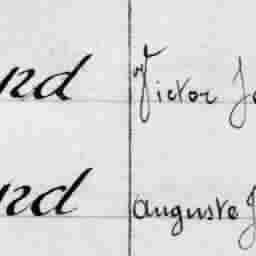 nd Victor
nd auguste